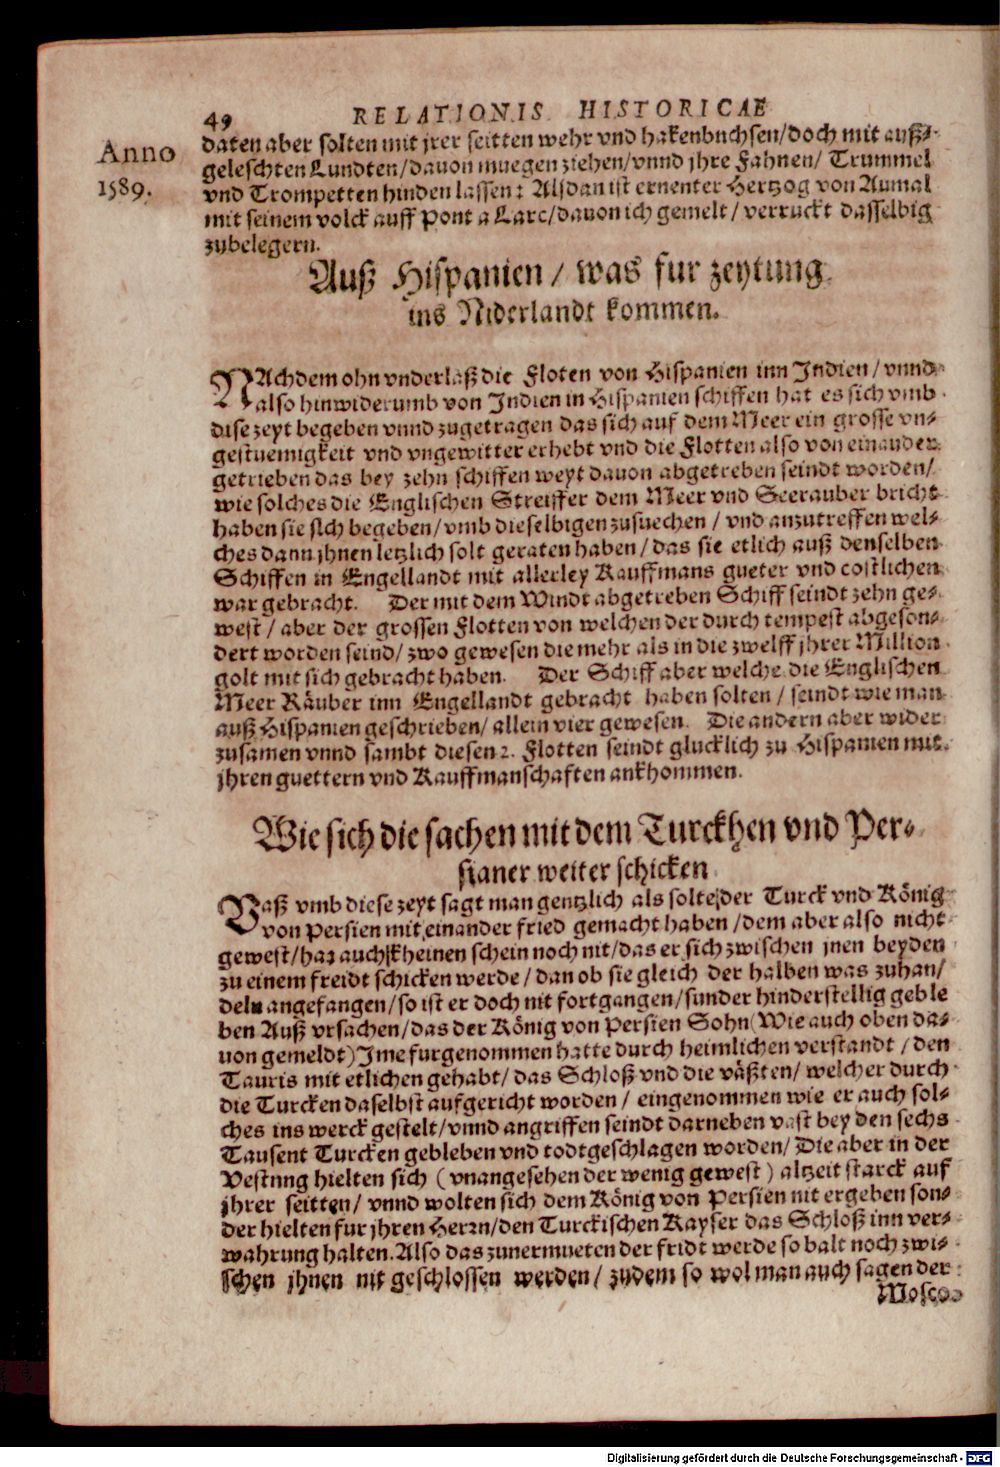 49 RELATIONIS HISTORICAE
Anno
1589.
daten aber solten mit jrer seitten wehr vnd hakenbuchsen/doch mit auß-
geleschten Lundten/dauon muegen ziehen/vnnd jhre Fahnen/ Trummel
vnd Trompetten hinden lassen: Alsdan ist ernenter Hertzog von Aumal
mit seinem volck auff Pont a Larc/dauon ich gemelt/ verruckt dasselbig
zubelegern.
Auß Hispanien/ was fur zeytung
ins Niderlandt kommen.
NAchdem ohn vnderlaß die Floten von Hispanien inn Indien/ vnnd
also hinwiderumb von Indien in Hispanien schiffen hat es sich vmb
dise zeyt begeben vnnd zugetragen das sich auf dem Meer ein grosse vn-
gestuemigkeit vnd vngewitter erhebt vnd die Flotten also von einander
getrieben das bey zehn schiffen weyt dauon abgetreben seindt worden/
wie solches die Englischen Streiffer dem Meer vnd Seerauber bricht
haben sie sich begeben/ vmb dieselbigen zusuechen/ vnd anzutreffen wel-
ches dann jhnen letzlich solt geraten haben/ das sie etlich auß denselben
Schiffen in Engellandt mit allerley Kauffmans gueter vnd costlichen
war gebracht. Der mit dem Windt abgetreben Schiff seindt zehn ge-
west/ aber der grossen Flotten von welchen der durch tempest abgeson-
dert worden seind/ zwo gewesen die mehr als in die zwelff jhrer Million
golt mit sich gebracht haben. Der Schiff aber welche die Englischen
Meer Räuber inn Engellandt gebracht haben solten/ seindt wie man
auß Hispanien geschrieben/ allein vier gewesen. Die andern aber wider
zusamen vnnd sambt diesen 2. Flotten seindt glucklich zu Hispanien mit
jhren guettern vnd Kauffmanschaften ankhommen.
Wie sich die sachen mit dem Turckhen vnd Per-
sianer weiter schicken
Vaß vmb diese zeyt sagt man gentzlich als solte der Turck vnd König
von Persien mit einander fried gemacht haben/dem aber also nicht
gewest/hat auch kheinen schein noch nit/das er sich zwischen jnen beyden
zu einem freidt schicken werde/ dan ob sie gleich der halben was zuhan/
deln angefangen/so ist er doch nit fortgangen/sunder hinderstellig geble
ben Auß vrsachen/das der König von Persien Sohn (Wie auch oben da-
uon gemeldt) Ime furgenommen hatte durch heimlichen verstandt/ den
Tauris mit etlichen gehabt/ das Schloß vnd die väßten/ welcher durch
die Turcken daselbst aufgericht worden/ eingenommen wie er auch sol-
ches ins werck gestelt/vnnd angriffen seindt darneben vast bey den sechs
Tausent Turcken gebleben vnd todtgeschlagen worden/ Die aber in der
Vestung hielten sich (vnangesehen der wenig gewest) altzeit starck auf
jhrer seitten/ vnnd wolten sich dem König von Persien nit ergeben son-
der hielten fur jhren Herrn/den Turckischen Kayser das Schloß inn ver-
wahrung halten. Also das zunermueten der fridt werde so balt noch zwi-
schen jhnen nit geschlossen werden/ zudem so wol man auch sagen der
Mosco-
Digitalisierung gefördert durch die Deutsche Forschungsgemeinschaft - DFG